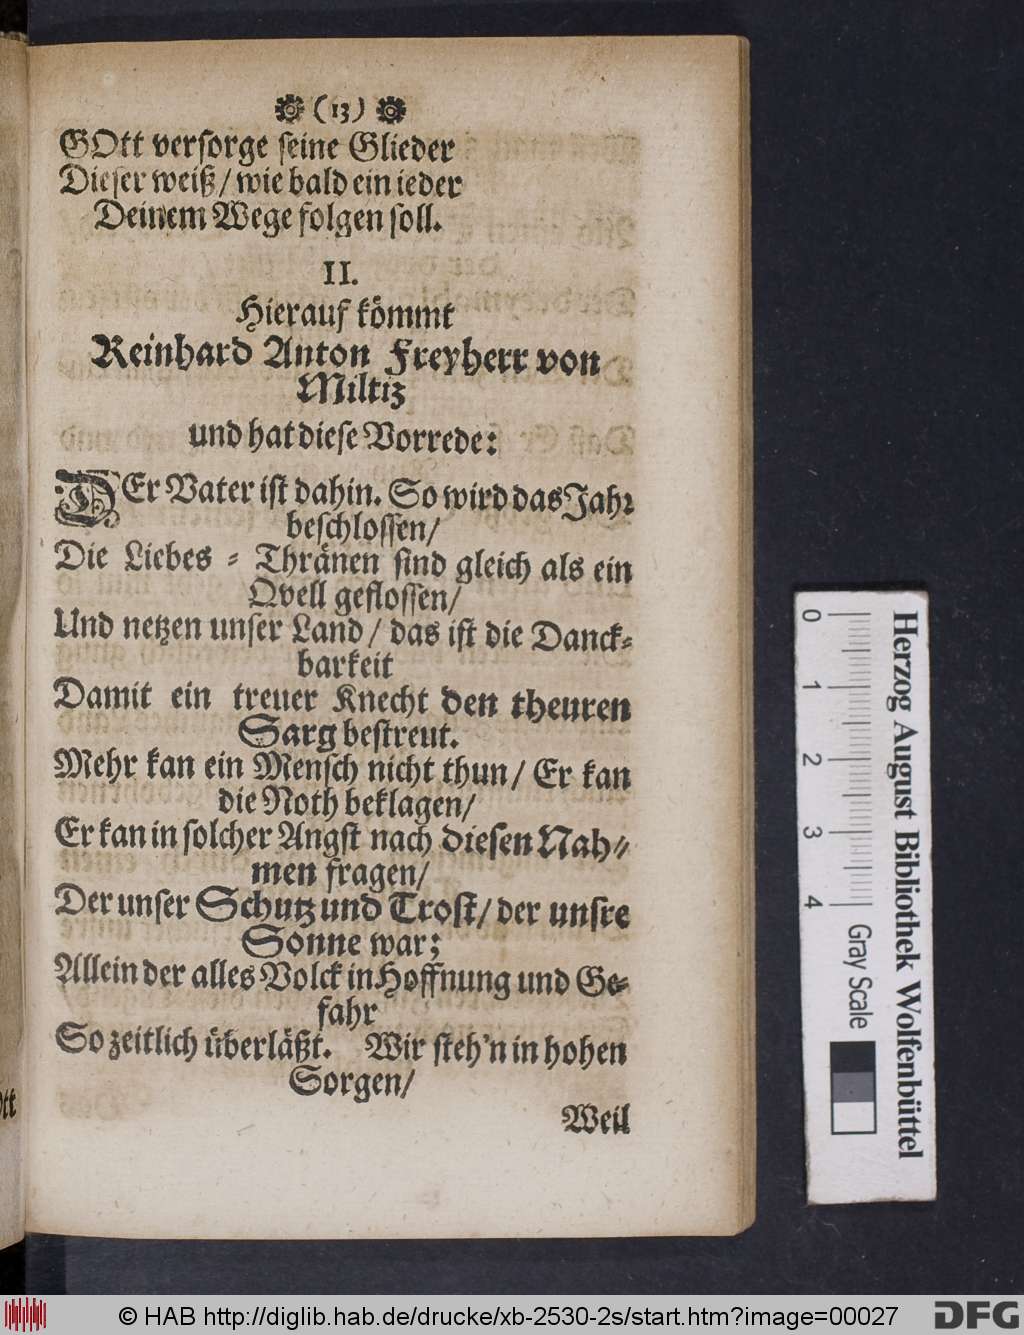 (13)
GOtt versorge seine Glieder
Dieser weiß/ wie bald ein ieder
Deinem Wege folgen soll.
II.
Hierauf kömmt
Reinhard Anton Freyherr von
Miltiz
und hat diese Vorrede:
DEr Vater ist dahin. So wird das Jahr
beschlossen/
Die Liebes-Thränen sind gleich als ein
Qvell geflossen/
Und netzen unser Land/ das ist die Danck-
barkeit
Damit ein treuer Knecht den theuren
Sarg bestreut.
Mehr kan ein Mensch nicht thun/ Er kan
die Noth beklagen/
Er kan in solcher Angst nach diesen Nah-
men fragen/
Der unser Schutz und Trost/ der unsre
Sonne war;
Allein der alles Volck in Hoffnung und Ge-
fahr
So zeitlich überläßt. Wir steh'n in hohen
Sorgen/
Weil
0 1 2 3 4
Gray Scale
Herzog August Bibliothek Wolfenbüttel
© HAB http://diglib.hab.de/drucke/xb-2530-2s/start.htm?image=00027
DFG